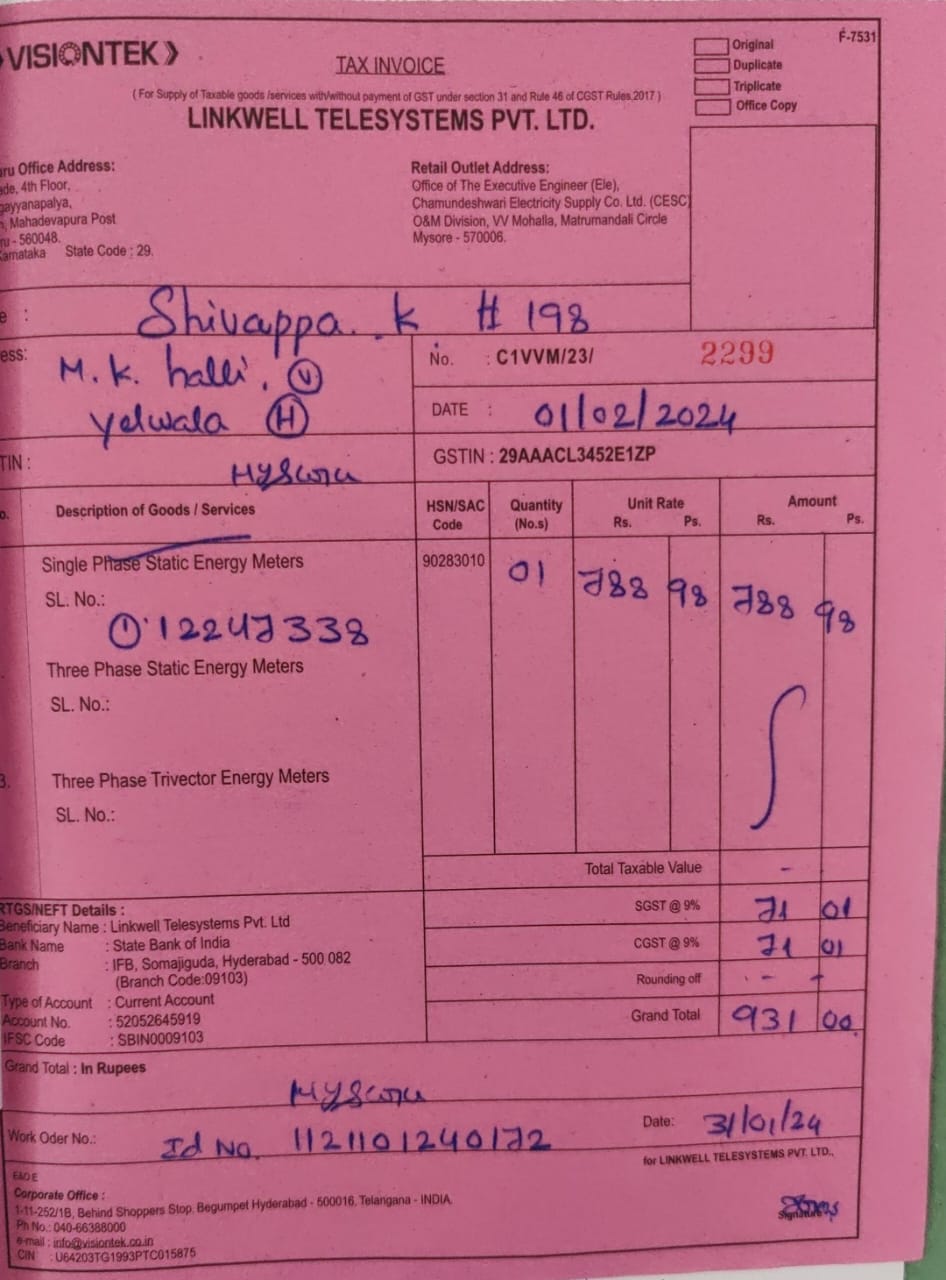 VISIONTEK
TAX INVOICE
Original
Duplicate
Triplicate
Office Copy
F-7531
( For Supply of Taxable goods /services with/without payment of GST under section 31 and Rule 46 of CGST Rules,2017 )
LINKWELL TELESYSTEMS PVT. LTD.
Office Address:
4th Floor,
Mahadevapura Post
- 560048.
State Code : 29.
Retail Outlet Address:
Office of The Executive Engineer (Ele),
Chamundeshwari Electricity Supply Co. Ltd. (CESC)
O&M Division, VV Mohalla, Matrumandali Circle
Mysore - 570006.
Shivappa. K # 198
M. K. halli, (V)
Yelwala (H)
Mysuru
No. : C1VVM/23/ 2299
DATE : 01/02/2024
GSTIN : 29AAACL3452E1ZP
Description of Goods / Services
HSN/SAC Code
Quantity (No.s)
Unit Rate
Rs. Ps.
Amount
Rs. Ps.
Single Phase Static Energy Meters 90283010 01 788 98 788 98
SL. No.:
① 12247338
Three Phase Static Energy Meters
SL. No.:
3. Three Phase Trivector Energy Meters
SL. No.:
Total Taxable Value -
SGST @ 9% 71 01
CGST @ 9% 71 01
Rounding off - -
Grand Total 931 00
RTGS/NEFT Details :
Beneficiary Name : Linkwell Telesystems Pvt. Ltd
Bank Name : State Bank of India
Branch : IFB, Somajiguda, Hyderabad - 500 082
(Branch Code:09103)
Type of Account : Current Account
Account No. : 52052645919
IFSC Code : SBIN0009103
Grand Total : In Rupees
Mysuru
Work Oder No.: Id No. 1121101240172
Date: 31/01/24
for LINKWELL TELESYSTEMS PVT. LTD.,
E&O E
Corporate Office :
1-11-252/1B, Behind Shoppers Stop, Begumpet Hyderabad - 500016, Telangana - INDIA.
Ph No.: 040-66388000
e-mail : info@visiontek.co.in
CIN : U64203TG1993PTC015875
Signature